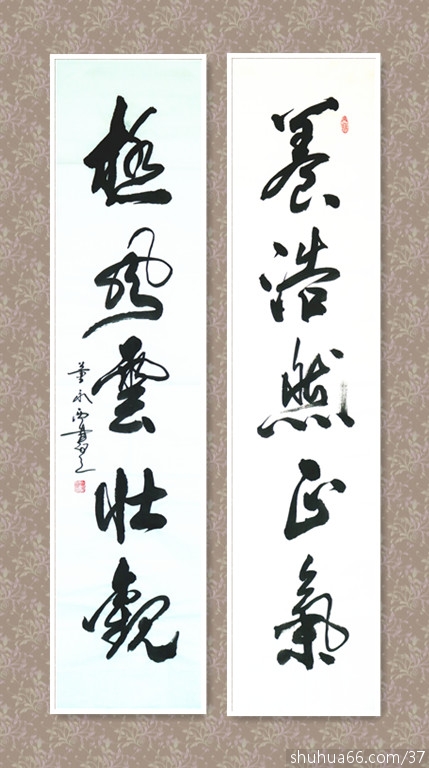 養浩然正氣
極風雲壯觀
董永西書
shuhua66.com/37